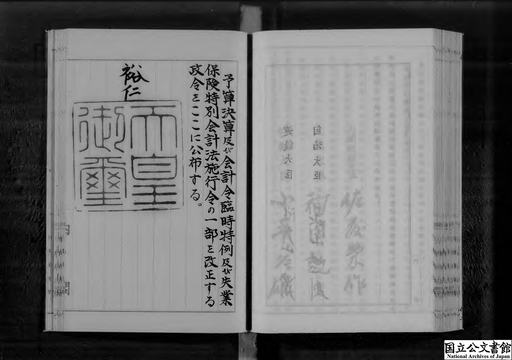 予算決算及び会計令臨時特例及び失業
保険特別会計法施行令の一部を改正する
政令をここに公布する。
裕仁
天皇
御璽
内閣
自治大臣
建設大臣
国立公文書館
National Archives of Japan